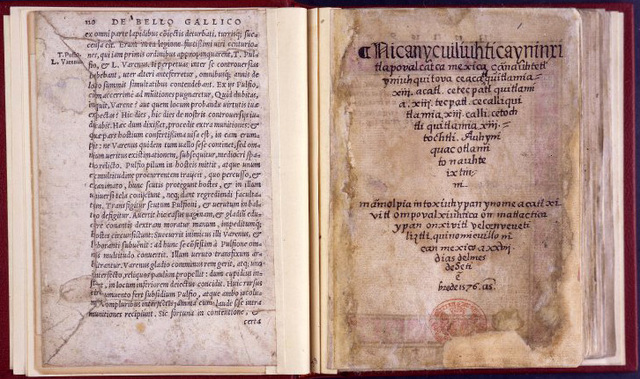 110 DE BELLO GALLICO
ex omni parte lapidibus coiectis deturbati, turrisq; suc-
censa est. Erant in ea legione fortissimi viri centurio-
nes, qui iam primis ordinibus appropinquarent, T. Pul-
T. Pulfio.
fio, & L. Varenus. Ii perpetuas inter se controuersias
L. Varenus
habebant, uter alteri anteferretur, omnibusq; annis de
loco summis simultatibus contendebant. Ex iis Pulfio,
cum acerrime ad munitiones pugnaretur, Quid dubitas,
inquit, Varene? aut quem locum probandæ virtutis tuæ
expectas? Hic dies, hic dies de nostris controuersiis iu-
dicabit. Hæc cum dixisset, procedit extra munitiones: et
quæ pars hostium confertissima uisa est, in eam erum-
pit: ne Varenus quidem tum uallo sese continet, sed om-
nium ueritus existimationem, subsequitur, mediocri spa-
tio relicto. Pulfio pilum in hostes mittit, atque unum ex
multitudine procurrentem traiecit, quo percusso, &
exanimato, hunc scutis protegunt hostes, & in illum
uniuersi tela coniiciunt, neq; dant regrediendi faculta-
tem. Transfigitur scutum Pulfioni, & uerutum in balteo
defigitur. Auertit hic casus uaginam, & gladium edu-
cere conanti dextram moratur manum, impeditumq;
hostes circunsistunt: Succurrit inimicus illi Varenus, &
laboranti subuenit: ad hunc se confestim à Pulfione om-
nis multitudo conuertit. Illum ueruto transfixum ar-
bitrantur. Varenus gladio comminus rem gerit, atq; uno
interfecto, reliquos paulum propellit: dum cupidius in-
stat, in locum inferiorem deiectus concidit. Huic rursus
circumuento fert subsidium Pulfio, atque ambo incolu-
mes, compluribus interfectis, summa cum laude sese intra
munitiones recipiunt. Sic fortuna in contentione, &
certa
¶Nicanycuiliuhticaynin xi
tlapoval catca mexica çannauhtetl
ynmuhquitova ceacaquitlamia
.xiij. acatl. cetecpatl quitlami
a .xiij. tecpatl. cecalli qui
tlamia .xiij. calli. cetoch
tli quitlamia xiij.
tochtli. Auh yn
quac otlami
to nauhte
ixtin
m.
mamolpia intoxiuh ypan ynome acatl xi
vitl ompovalxiuhtica on matlactica
ypan onxivitl yelcenveueti
liztli, quinomeuillo ni
can mexico a xxvij
dias del mes
de set
ẽ
brede 1576. as.